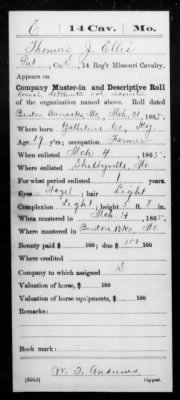 E 14 Cav. Mo.
Thomas J. Ellis
Pvt, Co. , 14 Reg't Missouri Cavalry.
Appears on
Company Muster-in and Descriptive Roll
of the organization named above. Roll dated
Benton Barracks Mo, Mch. 31, 1865.
Where born Gallatin Co, Ky
Age 19 y'rs; occupation Farmer
When enlisted Mch 4, 1865.
Where enlisted Shelbyville Mo
For what period enlisted 1 years.
Eyes Hazel; hair Light
Complexion Light; height 5 ft. 8 in.
When mustered in Mch. 4, 1865.
Where mustered in Benton Bks, Mo.
Bounty paid $ 100; due $ 100 100
Where credited
Company to which assigned D
Valuation of horse, $ 100
Valuation of horse equipments, $ 100
Remarks:
Book mark:
W. T. Andrews
Copyist.